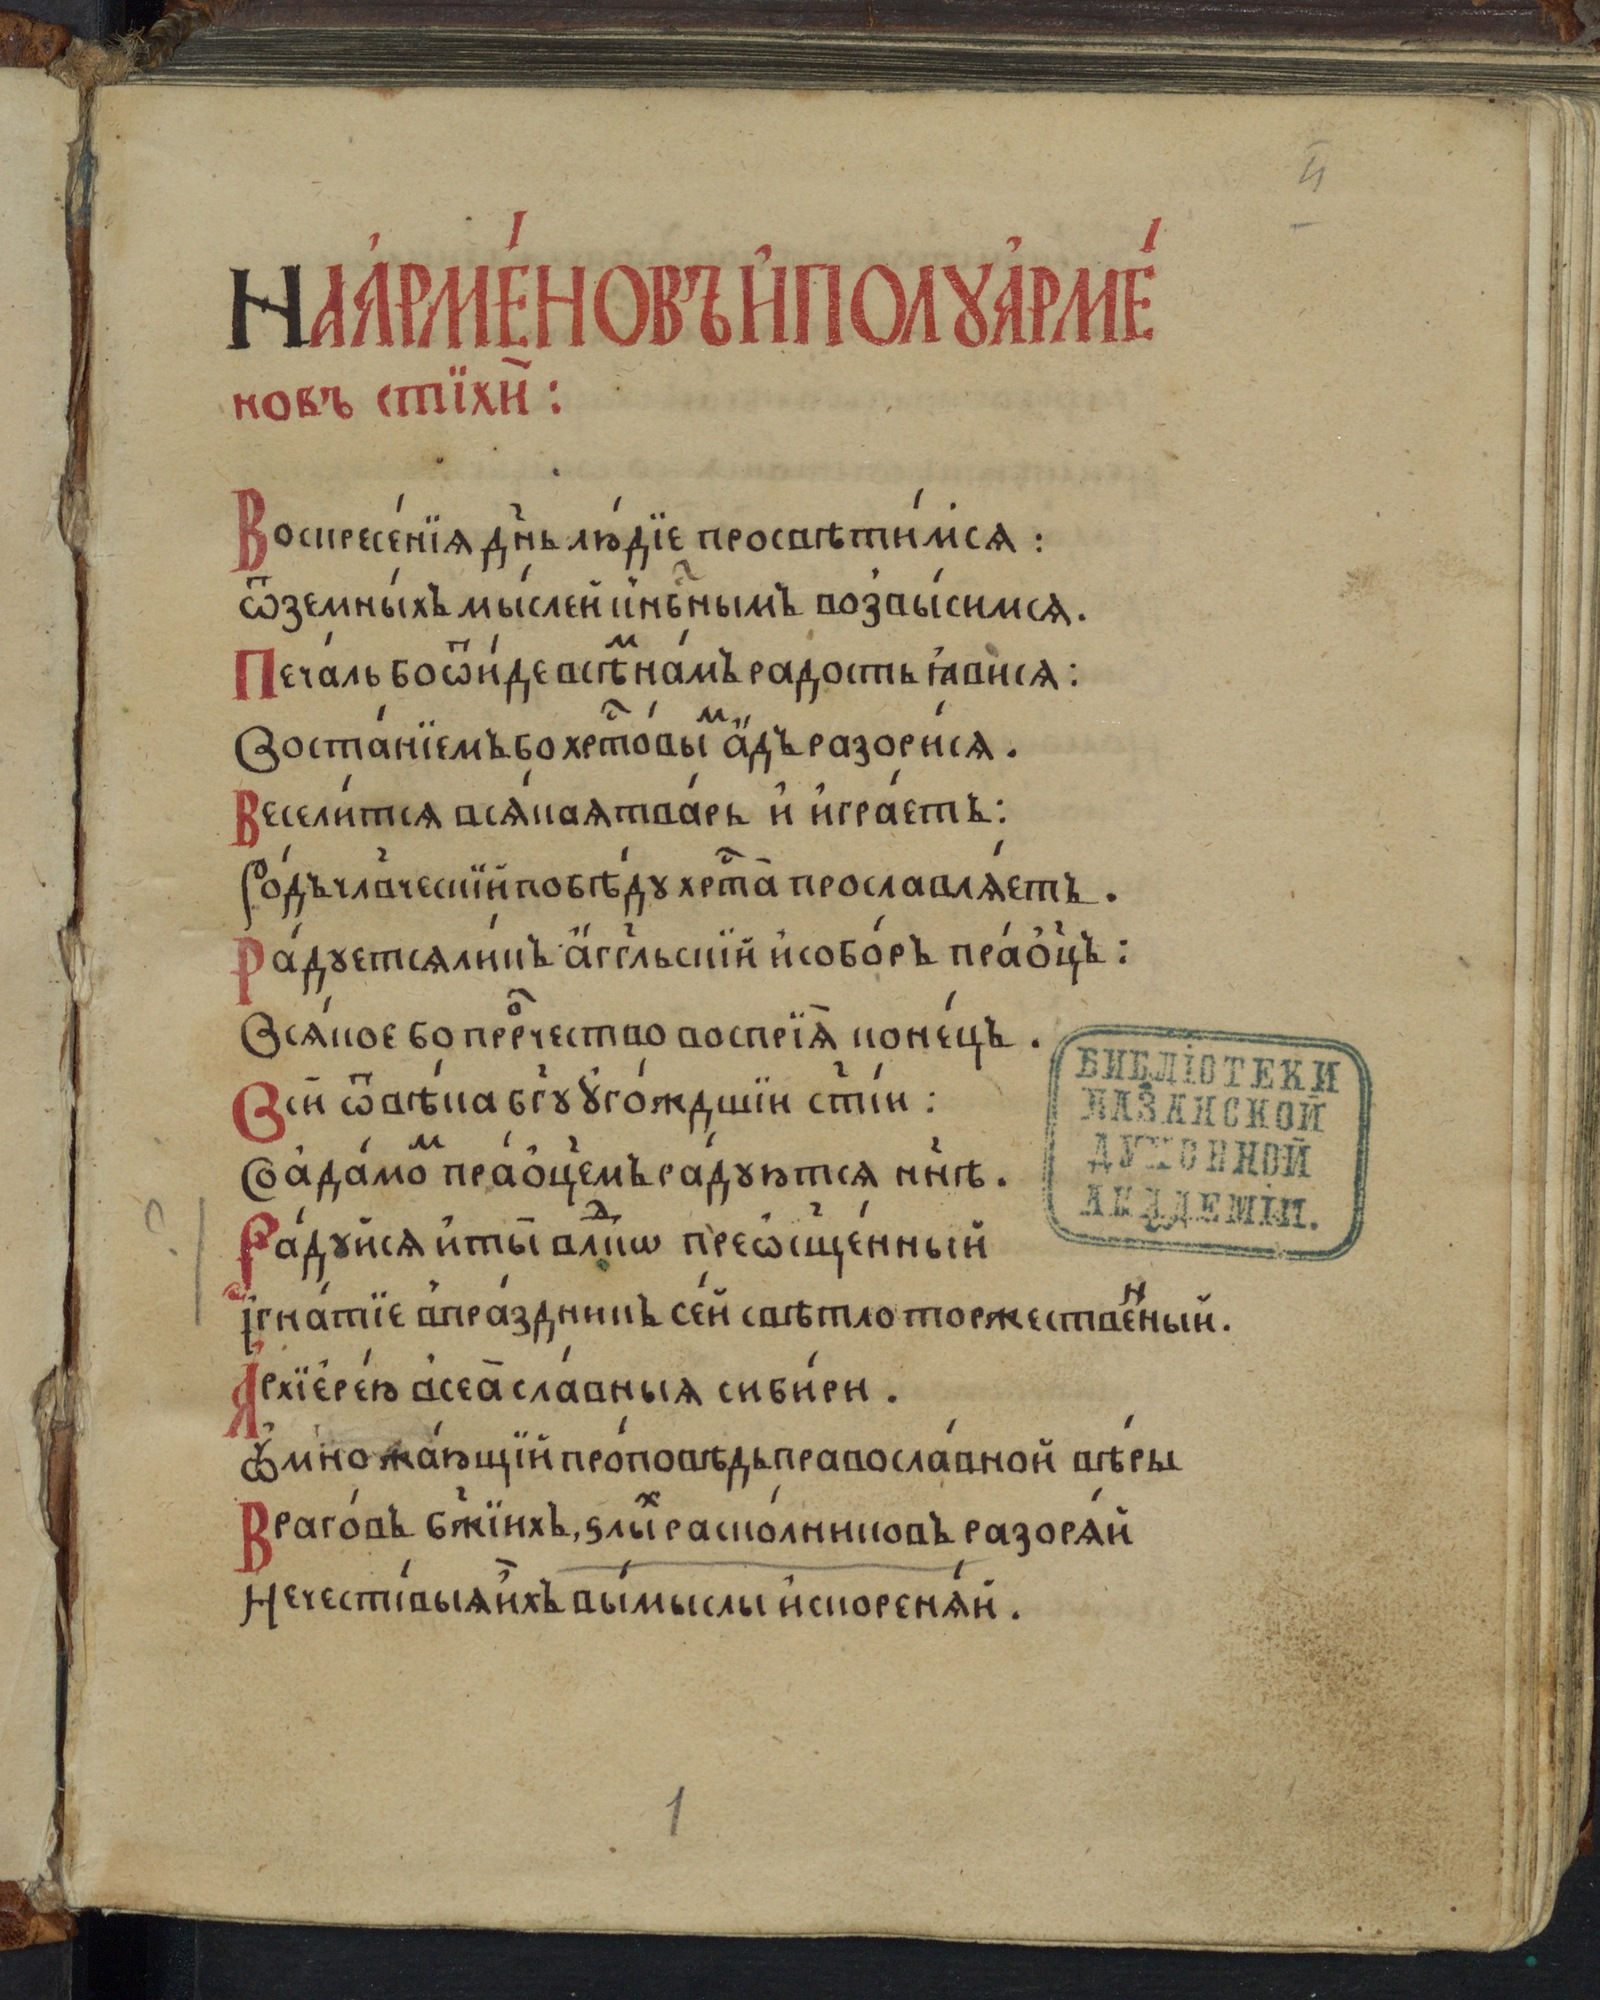 НА А҆РМЕ́НОВЪ И҆ ПОЛꙊА҆РМЕ́
новъ стїхѝ:
Воскресе́нїѧ дн҃ь лю́дїе просвѣти́мсѧ:
ѿ земны́хъ мы́слей и҆ нбⷭ҇нымъ возвы́симсѧ.
Печа́ль бо ѿи́де всѣⷨ на́мъ радость ꙗ҆висѧ:
Воста́нїемъ бо хрⷭ҇то́выⷨ а҆́дъ разори́сѧ.
Весели́тсѧ всѧ́каѧ тва́рь и҆ и҆гра́етъ:
Ро́дъ чл҃вческїй побѣ́ду хрⷭ҇та̀ прославлѧ́етъ.
Ра́дуетсѧ ли́къ а҆́гг҃льскїй и҆ собо́ръ пра́ѻ҆ц҃ъ:
Всѧ́кое бо прⷪ҇рчество воспрїѧ̀ коне́цъ.
Всѝ ѿ вѣ́ка бг҃у ᲂу҆го́ждшїи ст҃і́и:
Со а҆да́моⷨ пра́ѻ҆ц҃емъ ра́дуютсѧ нн҃ѣ.
Ра́дуйсѧ и҆ ты̀ влⷣкѡ прео҆сщ҃е́нный
і҆гна́тїе в̾ пра́здникъ се́й свѣтло торжестве́ⷩный.
А҆рхїере́ю все́ѧ сла́вныѧ сиби́ри.
ᲂу҆множа́ющїй про́повѣдь правосла́вной вѣ́ры
Враго́въ бж҃їихъ, ѕлы́ⷯ раско́лниковъ разорѧ́й
Нечести́выѧ и҆̀хъ вы́мыслы и҆скоренѧ́й.
БИБЛІОТЕКИ
КАЗАНСКОЙ
ДУХОВНОЙ
АКАДЕМІИ.
1